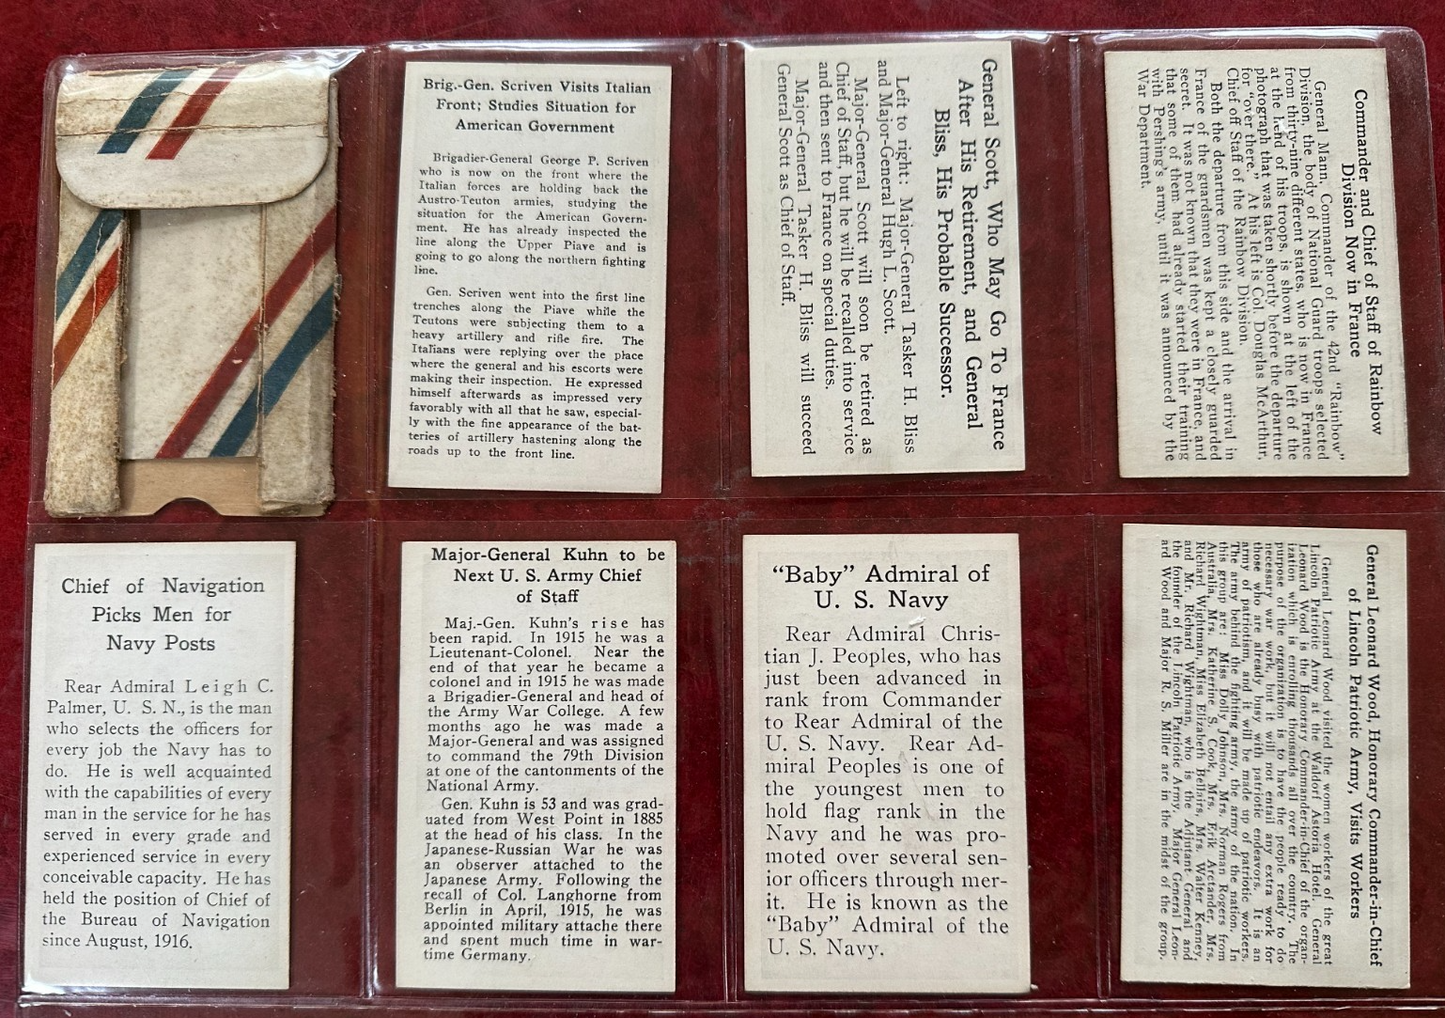 Brig.-Gen. Scriven Visits Italian
Front; Studies Situation for
American Government
Brigadier-General George P. Scriven
who is now on the front where the
Italian forces are holding back the
Austro-Teuton armies, studying the
situation for the American Govern-
ment. He has already inspected the
line along the Upper Piave and is
going to go along the northern fighting
line.
Gen. Scriven went into the first line
trenches along the Piave while the
Teutons were subjecting them to a
heavy artillery and rifle fire. The
Italians were replying over the place
where the general and his escorts were
making their inspection. He expressed
himself afterwards as impressed very
favorably with all that he saw, especial-
ly with the fine appearance of the bat-
teries of artillery hastening along the
roads up to the front line.
General Scott, Who May Go To France
After His Retirement, and General
Bliss, His Probable Successor.
Left to right: Major-General Tasker H. Bliss
and Major-General Hugh L. Scott.
Major-General Scott will soon be retired as
Chief of Staff, but he will be recalled into service
and then sent to France on special duties.
Major-General Tasker H. Bliss will succeed
General Scott as Chief of Staff.
Commander and Chief of Staff of Rainbow
Division Now in France
General Mann, Commander of the 42nd "Rainbow"
Division, the body of National Guard troops selected
from thirty-nine different states, who is now in France
at the head of his troops, is shown at the left of the
photograph that was taken shortly before the departure
for "over there." At his left is Col. Douglas McArthur,
Chief off Staff of the Rainbow Division.
Both the departure from this side and the arrival in
France of the guardsmen was kept a closely guarded
secret. It was not known that they were in France, and
that some of them had already started their training
with Pershing's army, until it was announced by the
War Department.
Chief of Navigation
Picks Men for
Navy Posts
Rear Admiral Leigh C.
Palmer, U. S. N., is the man
who selects the officers for
every job the Navy has to
do. He is well acquainted
with the capabilities of every
man in the service for he has
served in every grade and
experienced service in every
conceivable capacity. He has
held the position of Chief of
the Bureau of Navigation
since August, 1916.
Major-General Kuhn to be
Next U. S. Army Chief
of Staff
Maj.-Gen. Kuhn's rise has
been rapid. In 1915 he was a
Lieutenant-Colonel. Near the
end of that year he became a
colonel and in 1915 he was made
a Brigadier-General and head of
the Army War College. A few
months ago he was made a
Major-General and was assigned
to command the 79th Division
at one of the cantonments of the
National Army.
Gen. Kuhn is 53 and was grad-
uated from West Point in 1885
at the head of his class. In the
Japanese-Russian War he was
an observer attached to the
Japanese Army. Following the
recall of Col. Langhorne from
Berlin in April, 1915, he was
appointed military attache there
and spent much time in war-
time Germany.
"Baby" Admiral of
U. S. Navy
Rear Admiral Chris-
tian J. Peoples, who has
just been advanced in
rank from Commander
to Rear Admiral of the
U. S. Navy. Rear Ad-
miral Peoples is one of
the youngest men to
hold flag rank in the
Navy and he was pro-
moted over several sen-
ior officers through mer-
it. He is known as the
"Baby" Admiral of the
U. S. Navy.
General Leonard Wood, Honorary Commander-in-Chief
of Lincoln Patriotic Army, Visits Workers
General Leonard Wood visited the women workers of the great
Lincoln Patriotic Army at the Waldorf Astoria Hotel. General
Leonard Wood is the Honorary Commander-in-Chief of the organ-
ization which is enrolling thousands all over the country. The
purpose of the organization is to have the people ready to do
necessary war work, but it will not entail any extra work for
those who are already busy with patriotic endeavors. It is an
army of patriotism, and it will be made up of patriotic workers.
The army behind the fighting army, the army of the nation. In
this group are: Miss Dolly Johnson, Mrs. Norman Rogers from
Australia, Mrs. Katherine S. Cook, Mrs. Erik Arctander, Mrs.
Richard Wightman, Miss Elizabeth Bellairs, Mrs. Walter Kenney,
and Mr. Richard Wightman, who is the Adjutant General and
the founder of the Lincoln Patriotic Army. Major General Leon-
ard Wood and Major R. S. Miller are in the midst of the group.